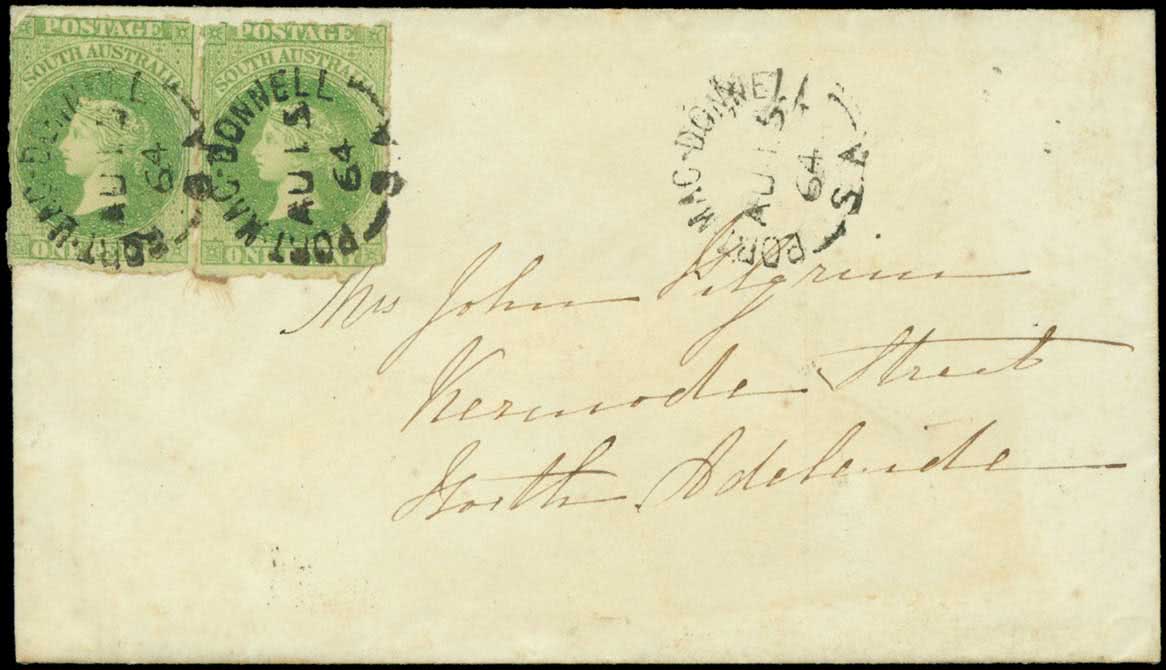 POSTAGE
SOUTH AUSTRALIA
POSTAGE
SOUTH AUSTRALIA
PORT·MAC·DONNELL
AU 15
64
S.A
PORT·MAC·DONNELL
AU 15
64
S.A
PORT·MAC·DONNELL
AU 15
64
S.A
ONE
Mrs John Pilgrim
Kermode Street
North Adelaide